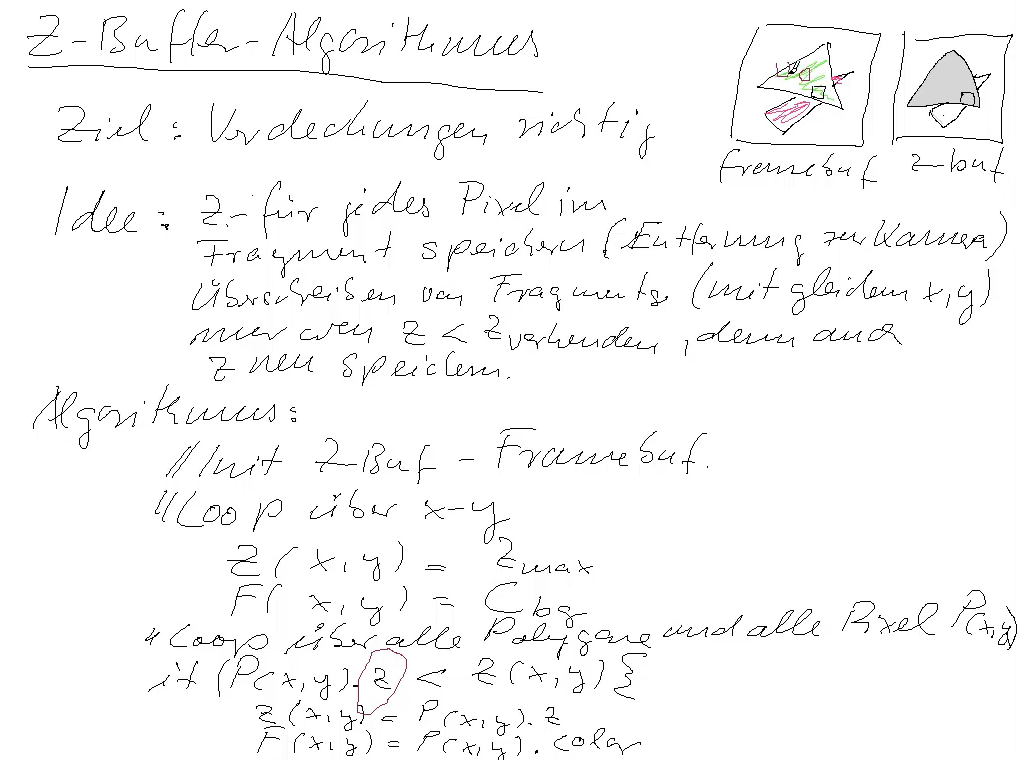 Z-Buffer-Algorithmus
Ziel: Verdeckungen richtig
Framebuf z-buf
Idee: z- für jedes Pixel im
Fragment speichern (Entfernung zur Kamera)
Überschreiben von Fragmente (mit gleichem x,y)
nur wenn z < z vorhanden, dann auch
z neu speichern.
Algorithmus:
// Init Z-Buf - Framebuf.
// Loop über x-y
Z(x,y) = Zmax
F(x,y) = Cbg
// Loop über alle Polygone und alle Pixel P(x,y)
if (P(x,y).z < Z(x,y) {
Z(x,y) = P(x,y).z
F(x,y) = P(x,y).color